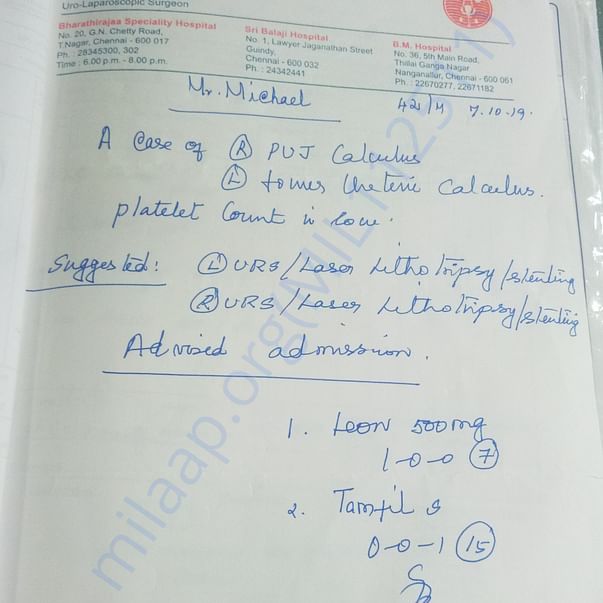 Uro-Laparoscopic Surgeon
Bharathirajaa Speciality Hospital
No. 20, G.N. Chetty Road,
T.Nagar, Chennai - 600 017
Ph. : 28345300, 302
Time : 6.00 p.m. - 8.00 p.m.
Sri Balaji Hospital
No. 1, Lawyer Jaganathan Street
Guindy,
Chennai - 600 032
Ph. : 24342441
B.M. Hospital
No. 36, 5th Main Road,
Thillai Ganga Nagar
Nanganallur, Chennai - 600 061
Ph. : 22670277, 22671182
Mr. Michael 42/M 7.10.19.
A Case of (R) PUJ Calculus
(L) Lower Ureteric Calculus.
Platelet Count is low.
Suggested: (L) URS/Laser Lithotripsy/stenting
(R) URS/Laser Lithotripsy/stenting
Advised admission.
1. Leon 500mg
1-0-0 (7)
2.
0-0-1 (15)
milaap.org